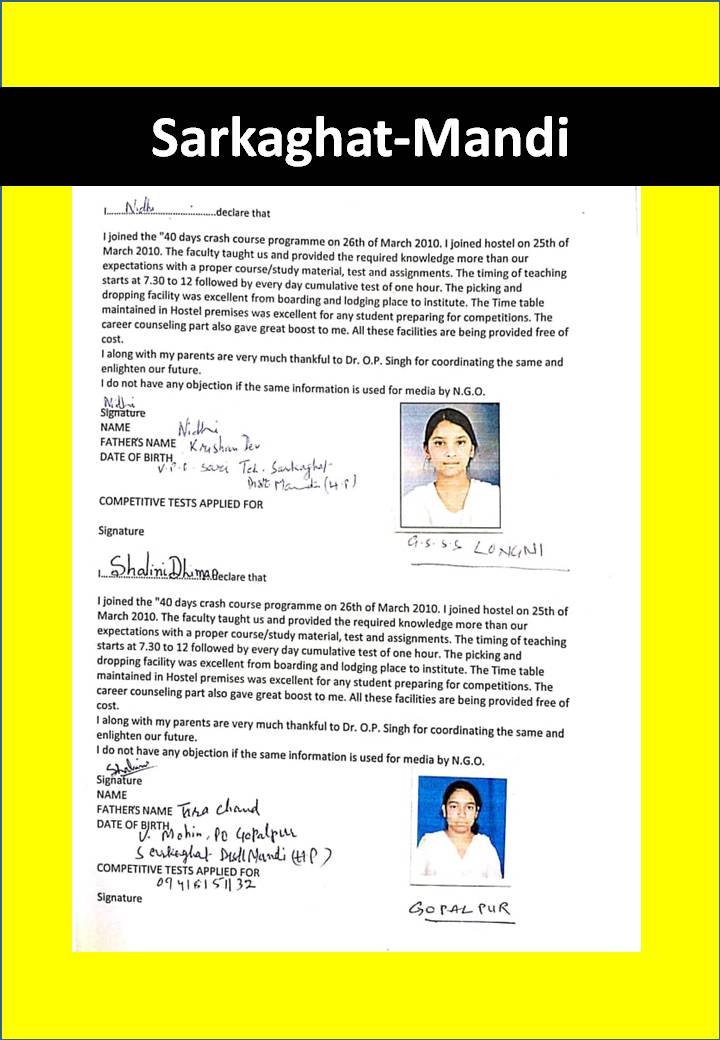 Sarkaghat-Mandi
I.......Nidhi..............................declare that
I joined the "40 days crash course programme on 26th of March 2010. I joined hostel on 25th of
March 2010. The faculty taught us and provided the required knowledge more than our
expectations with a proper course/study material, test and assignments. The timing of teaching
starts at 7.30 to 12 followed by every day cumulative test of one hour. The picking and
dropping facility was excellent from boarding and lodging place to institute. The Time table
maintained in Hostel premises was excellent for any student preparing for competitions. The
career counseling part also gave great boost to me. All these facilities are being provided free of
cost.
I along with my parents are very much thankful to Dr. O.P. Singh for coordinating the same and
enlighten our future.
I do not have any objection if the same information is used for media by N.G.O.
Nidhi
Signature
NAME Nidhi
FATHER'S NAME Krishan Dev
DATE OF BIRTH
V.P.O. Sari Teh. Sarkaghat
Distt Mandi (H.P)
COMPETITIVE TESTS APPLIED FOR
Signature
G.S.S.S LONGNI
I...Shalini Dhiman declare that
I joined the "40 days crash course programme on 26th of March 2010. I joined hostel on 25th of
March 2010. The faculty taught us and provided the required knowledge more than our
expectations with a proper course/study material, test and assignments. The timing of teaching
starts at 7.30 to 12 followed by every day cumulative test of one hour. The picking and
dropping facility was excellent from boarding and lodging place to institute. The Time table
maintained in Hostel premises was excellent for any student preparing for competitions. The
career counseling part also gave great boost to me. All these facilities are being provided free of
cost.
I along with my parents are very much thankful to Dr. O.P. Singh for coordinating the same and
enlighten our future.
I do not have any objection if the same information is used for media by N.G.O.
Shalini
Signature
NAME
FATHER'S NAME Tara Chand
DATE OF BIRTH
V. Mohin, PO Gopalpur
Sarkaghat Distt Mandi (HP)
COMPETITIVE TESTS APPLIED FOR
09418151132
Signature
GOPALPUR